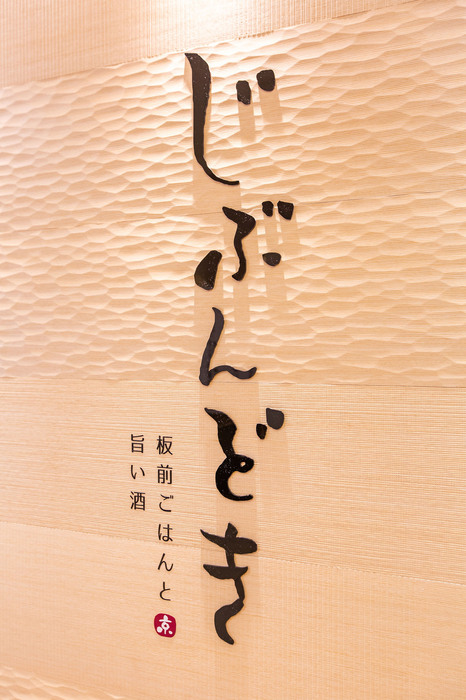 じぶんどき
板前ごはんと
旨い酒
京